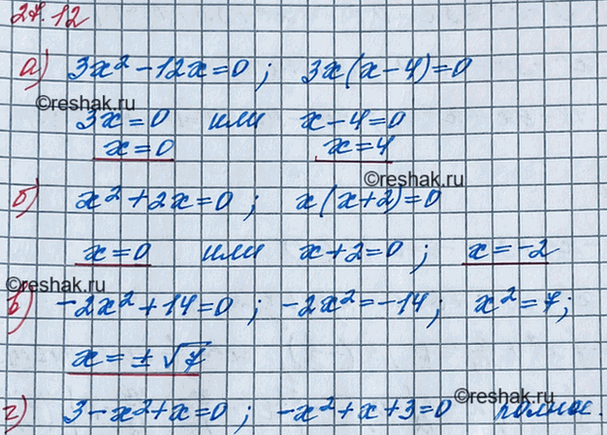 27.12
а) 3x² - 12x = 0 ; 3x(x - 4) = 0
©reshak.ru
3x = 0 или x - 4 = 0
x = 0 x = 4
©reshak.ru
б) x² + 2x = 0 ; x(x + 2) = 0
x = 0 или x + 2 = 0 ; x = -2
©reshak.ru
в) -2x² + 14 = 0 ; -2x² = -14 ; x² = 7 ;
x = ± √7
©reshak.ru
г) 3 - x² + x = 0 ; -x² + x + 3 = 0